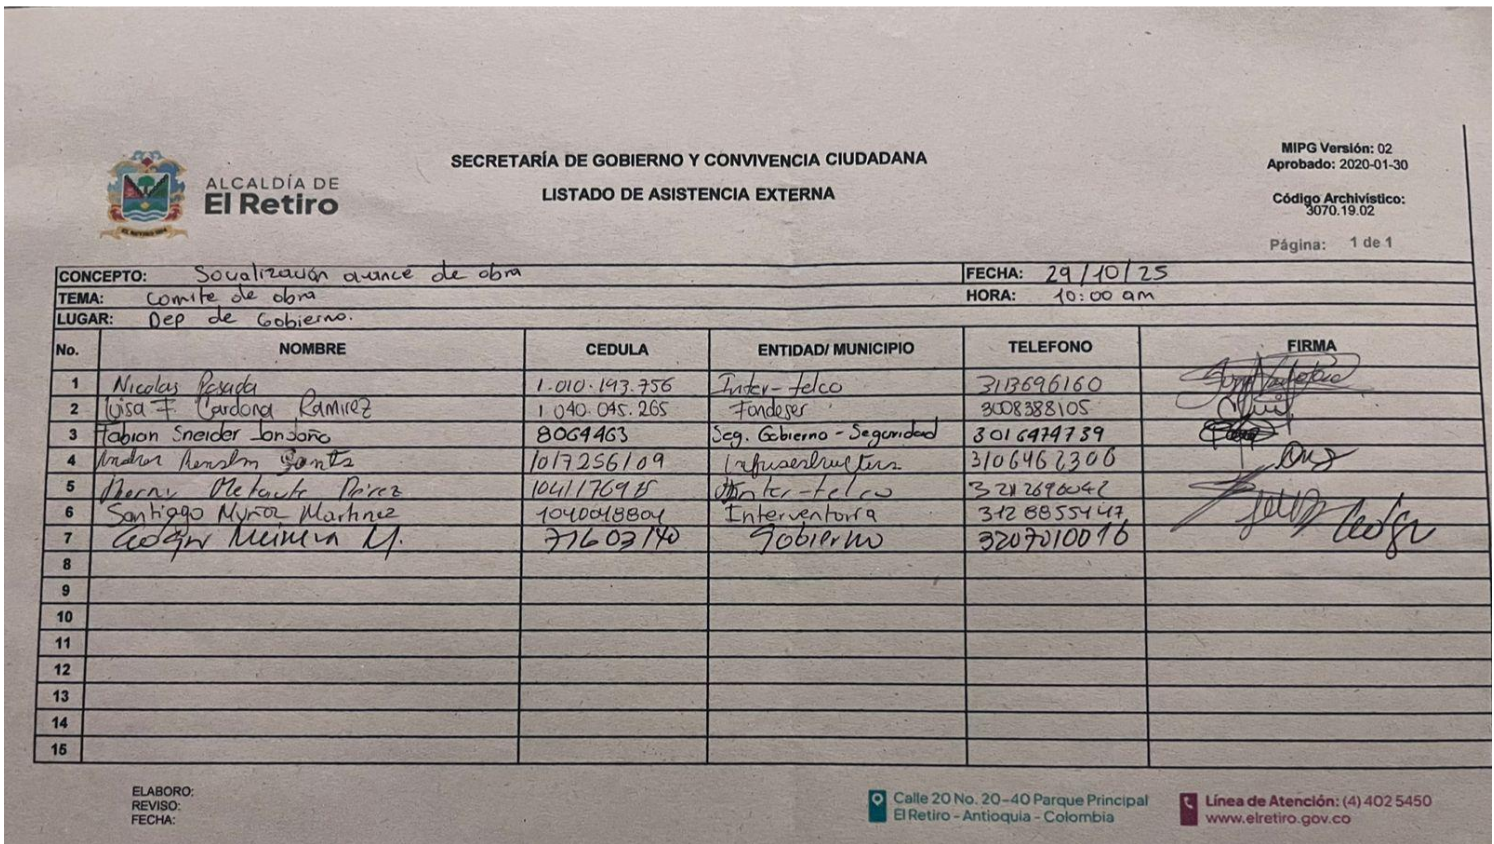 ALCALDÍA DE
El Retiro
SECRETARÍA DE GOBIERNO Y CONVIVENCIA CIUDADANA
LISTADO DE ASISTENCIA EXTERNA
MIPG Versión: 02
Aprobado: 2020-01-30
Código Archivístico:
3070.19.02
Página: 1 de 1
CONCEPTO: Socialización avance de obra FECHA: 29/10/25
TEMA: Comite de obra HORA: 10:00 am
LUGAR: Dep de Gobierno.
No. NOMBRE CEDULA ENTIDAD/ MUNICIPIO TELEFONO FIRMA
1 Nicolas Posada 1.010.193.756 Inter-telco 313696160
2 Luisa F. Cardona Ramirez 1 040.045.265 Fondeser 3008388105
3 Fabian Sneider Londoño 8064463 Seg. Gobierno - Seguridad 3016474739
4 1017256109 3106462306
5 Perez Inter-telco
6 Santiago Martinez 1040048804 Interventoria 3128855447
7 M. 71603140 Gobierno 3207010016
8
9
10
11
12
13
14
15
ELABORO:
REVISO:
FECHA:
Calle 20 No. 20-40 Parque Principal
El Retiro - Antioquia - Colombia
Línea de Atención: (4) 402 5450
www.elretiro.gov.co